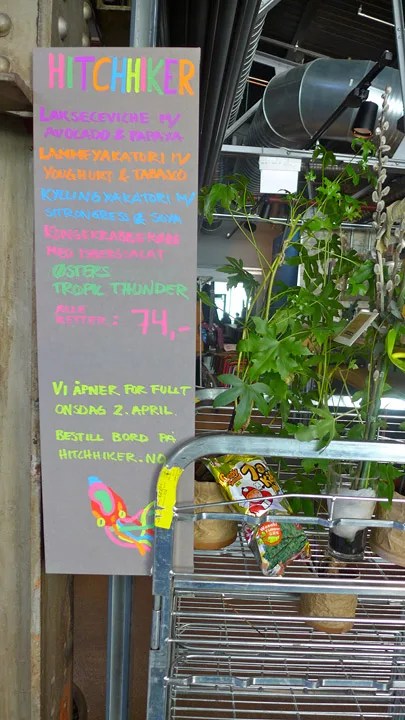 HITCHHIKER
LAKSECEVICHE M/
AVOCADO & PAPAYA
LAMMEYAKATORI M/
YOUGHURT & TABASCO
KYLLINGYAKATORI M/
SITRONGRESS & SOYA
MED
ØSTERS
TROPIC THUNDER
ALLE
RETTER: 74,-
VI ÅPNER FOR FULLT
ONSDAG 2. APRIL.
BESTILL BORD PÅ
HITCHHIKER.NO